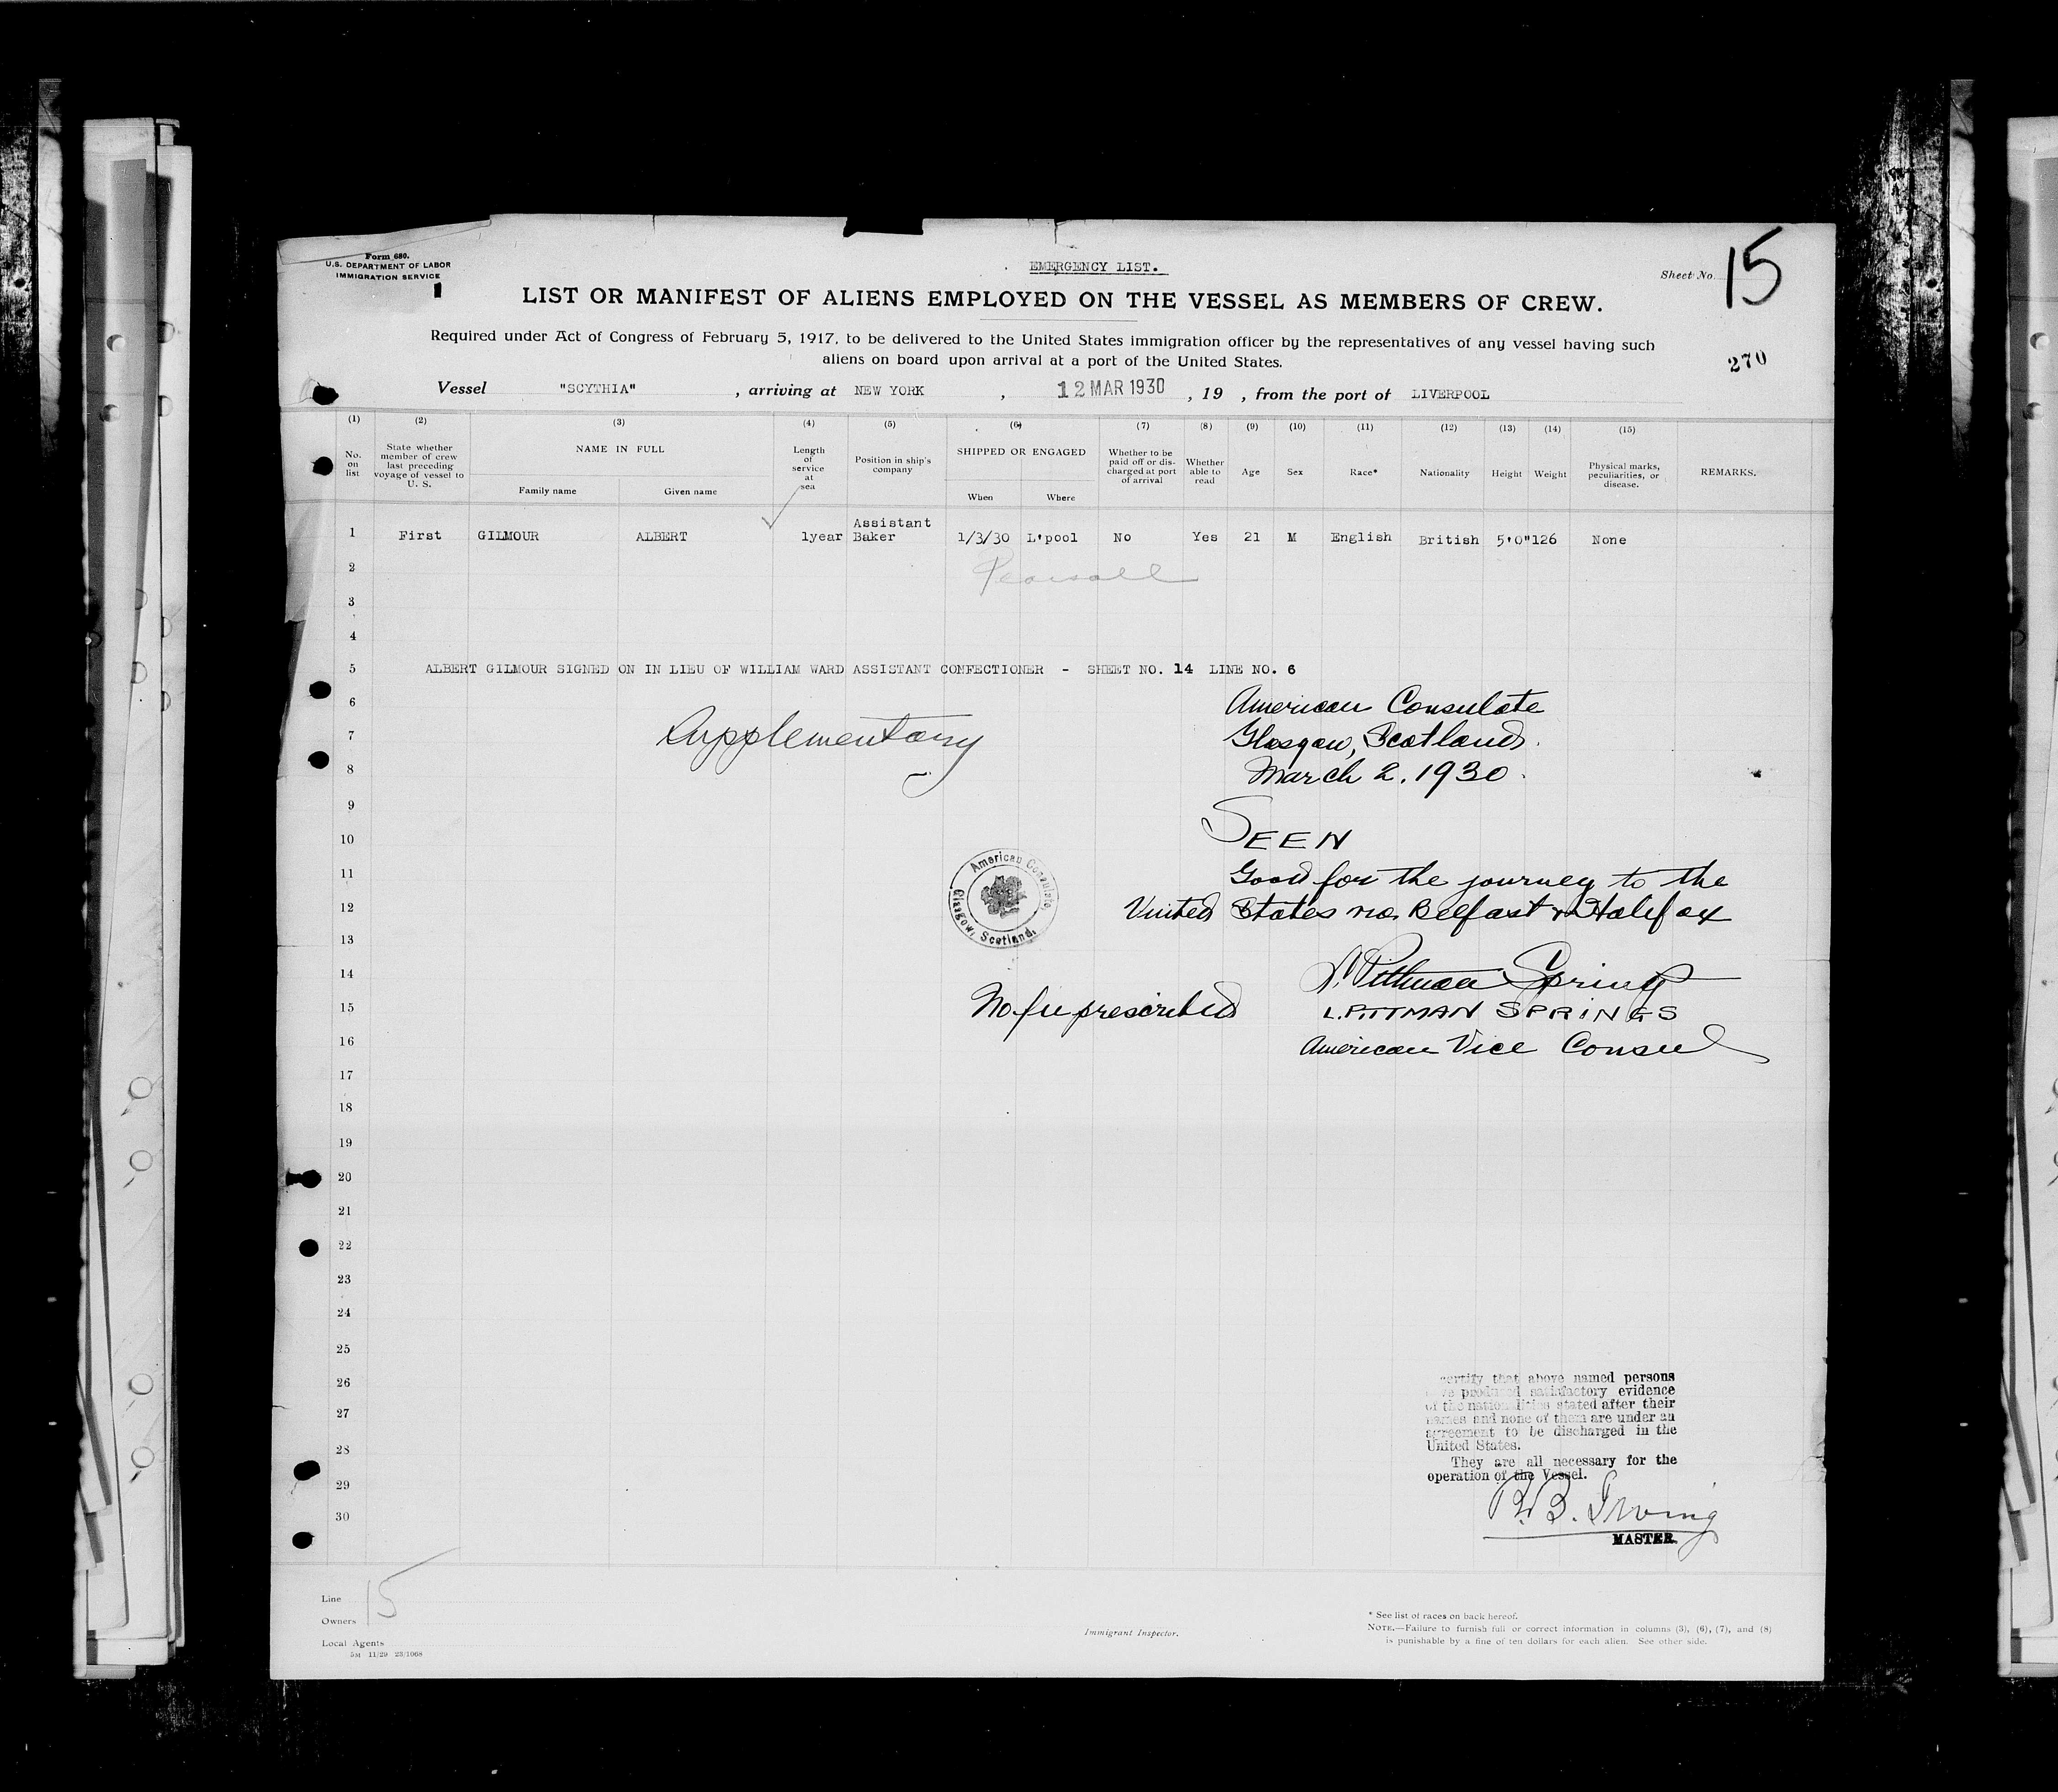 Form 680.
U.S. DEPARTMENT OF LABOR
IMMIGRATION SERVICE
EMERGENCY LIST.
Sheet No. 15
LIST OR MANIFEST OF ALIENS EMPLOYED ON THE VESSEL AS MEMBERS OF CREW.
Required under Act of Congress of February 5, 1917, to be delivered to the United States immigration officer by the representatives of any vessel having such
aliens on board upon arrival at a port of the United States.
270
Vessel "SCYTHIA", arriving at NEW YORK, 12 MAR 1930, 19 , from the port of LIVERPOOL
(1) (2) (3) (4) (5) (6) (7) (8) (9) (10) (11) (12) (13) (14) (15)
No. on list
State whether member of crew last preceding voyage of vessel to U. S.
NAME IN FULL
Family name
Given name
Length of service at sea
Position in ship's company
SHIPPED OR ENGAGED
When
Where
Whether to be paid off or discharged at port of arrival
Whether able to read
Age
Sex
Race*
Nationality
Height
Weight
Physical marks, peculiarities, or disease.
REMARKS.
1 First GILMOUR ALBERT 1year Assistant Baker 1/3/30 L'pool No Yes 21 M English British 5'0" 126 None
2
3
4
5 ALBERT GILMOUR SIGNED ON IN LIEU OF WILLIAM WARD ASSISTANT CONFECTIONER - SHEET NO. 14 LINE NO. 6
6 American Consulate
7 Supplementary Glasgow, Scotland.
8 March 2, 1930.
9
10 SEEN
11 Good for the journey to the
12 United States via Belfast & Halifax
American Consulate, Glasgow, Scotland.
13
14 L. Pittman Springs
15 No fee prescribed L. PITTMAN SPRINGS
16 American Vice Consul
17
18
19
20
21
22
23
24
25
26
27
28
29
30
certify that above named persons
have produced satisfactory evidence
of the nationalities stated after their
names and none of them are under an
agreement to be discharged in the
United States.
They are all necessary for the
operation of the Vessel.
R.B. Irving
MASTER
Line
Owners
15
Local Agents
5M 11/29 23/1068
Immigrant Inspector.
* See list of races on back hereof.
NOTE.—Failure to furnish full or correct information in columns (3), (6), (7), and (8)
is punishable by a fine of ten dollars for each alien. See other side.